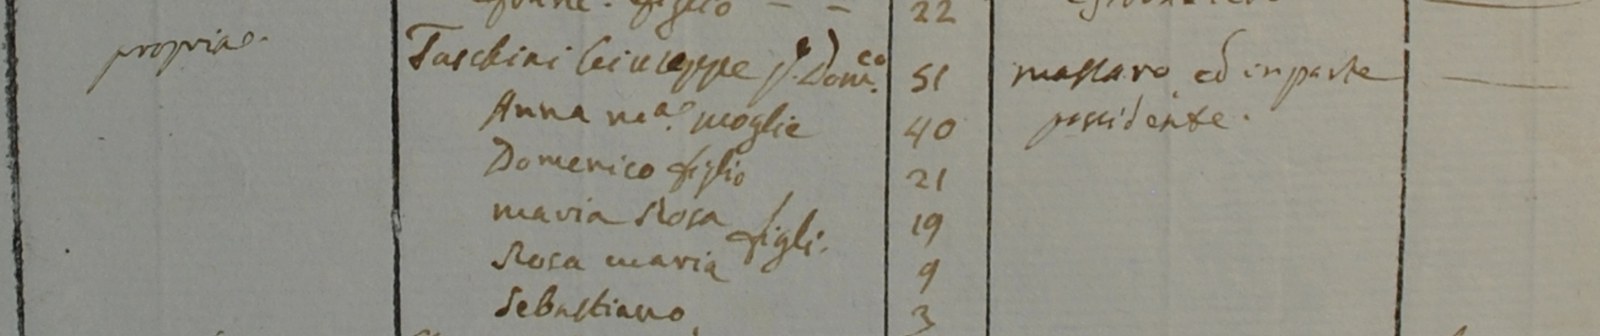 figlio - - 22
propria. Taschini Giuseppe f. Dom.co 51 massaro, ed in parte
Anna M.a moglie 40 possidente.
Domenico figlio 21
maria Rosa 19
figli.
Rosa maria 9
Sebastiano 3